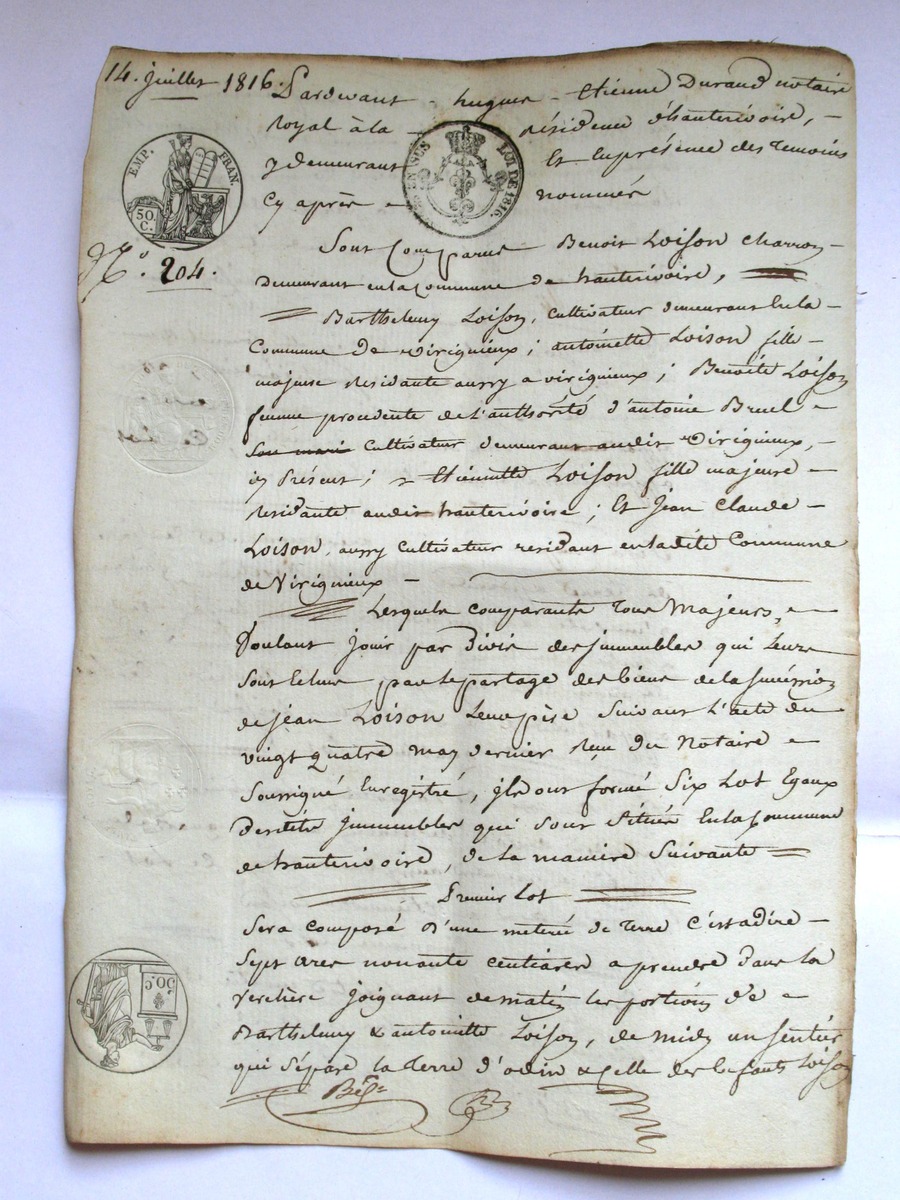 14. Juillet 1816. Pardevant - hugues - Etienne Durand notaire
royal à la - résidence d'hauterivoire, -
y demeurant Et En présence des Temoins
Cy après - nommés
EMP. FRAN.
50 C.
EN SUS LOI DE 1816.
N.° 204.
Sont Comparus Benoit Loison Charron -
demeurant en la Commune de hauterivoire,
Barthelemy Loison, Cultivateur demeurant En la -
Commune De virignieux; antoinette Loison fille -
majeure residante aussy a virignieux; Benoîte Loison
femme procedente de L'authorité d'antoine Bruel -
Son mari Cultivateur demeurant audit Virignieux, -
icy Présent; & Etiennette Loison fille majeure -
residante audit hauterivoire; Et Jean Claude -
Loison, aussy Cultivateur residant en ladite Commune
de Virignieux -
Lesquels comparants Tous Majeurs, -
Voulant Jouir par Divis des Immeubles qui Leurs
sont Echus par le partage des biens de la succession
de Jean Loison Leur père Suivant L'acte du
vingt quatre may dernier Reçu du Notaire -
Soussigné Enregistré, ils ont formé Six Lot Egaux
desdits Immeubles qui sont Situés En la Commune
de hauterivoire, de la maniere Suivante
Premier Lot
Sera Composé d'une meterée de Terre C'est a dire -
Sept ares nonante centiares a prendre dans la
verchere Joignant de matin les portions de -
Barthelemy & antoinette Loison, de midy un sentier
qui Sépare la Terre d'odin & Celle des Enfants Loison
50. C.